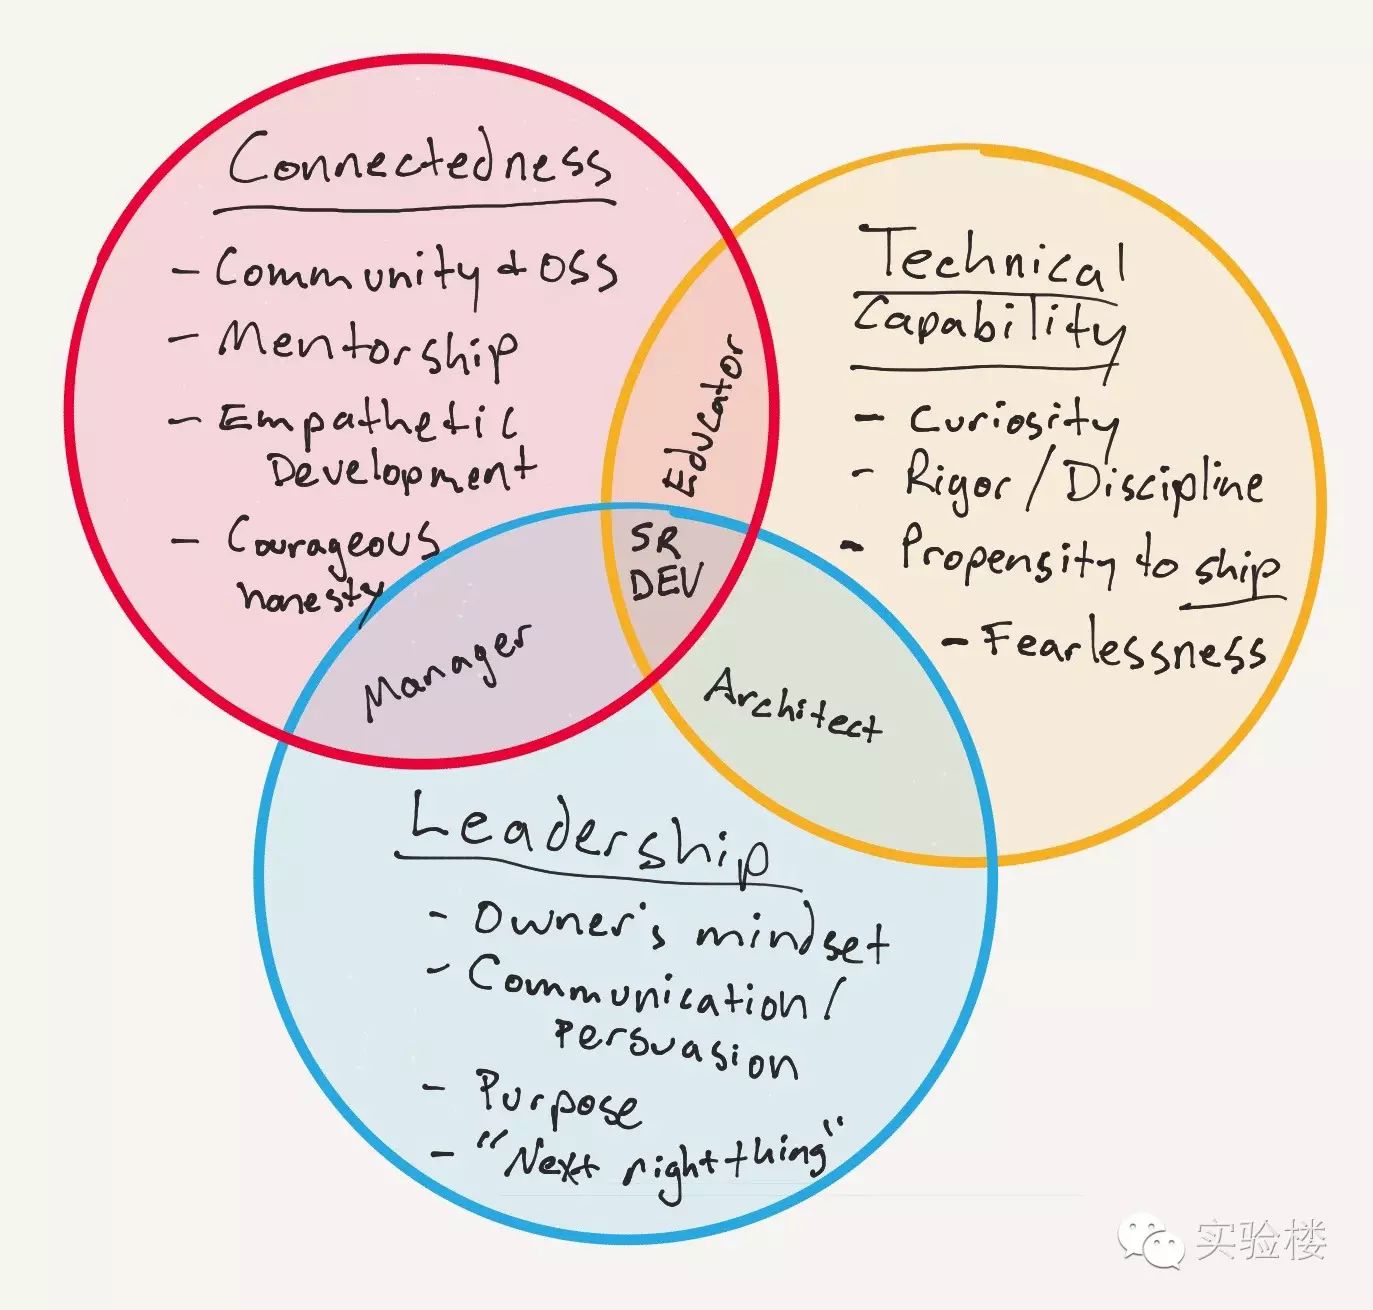 Connectedness
- Community & OSS
- Mentorship
- Empathetic
Development
- Courageous
honesty
Technical
Capability
- Curiosity
- Rigor / Discipline
- Propensity to ship
- Fearlessness
Educator
SR
DEV
Manager
Architect
Leadership
- Owner's mindset
- Communication /
Persuasion
- Purpose
- "Next right thing"
实验楼